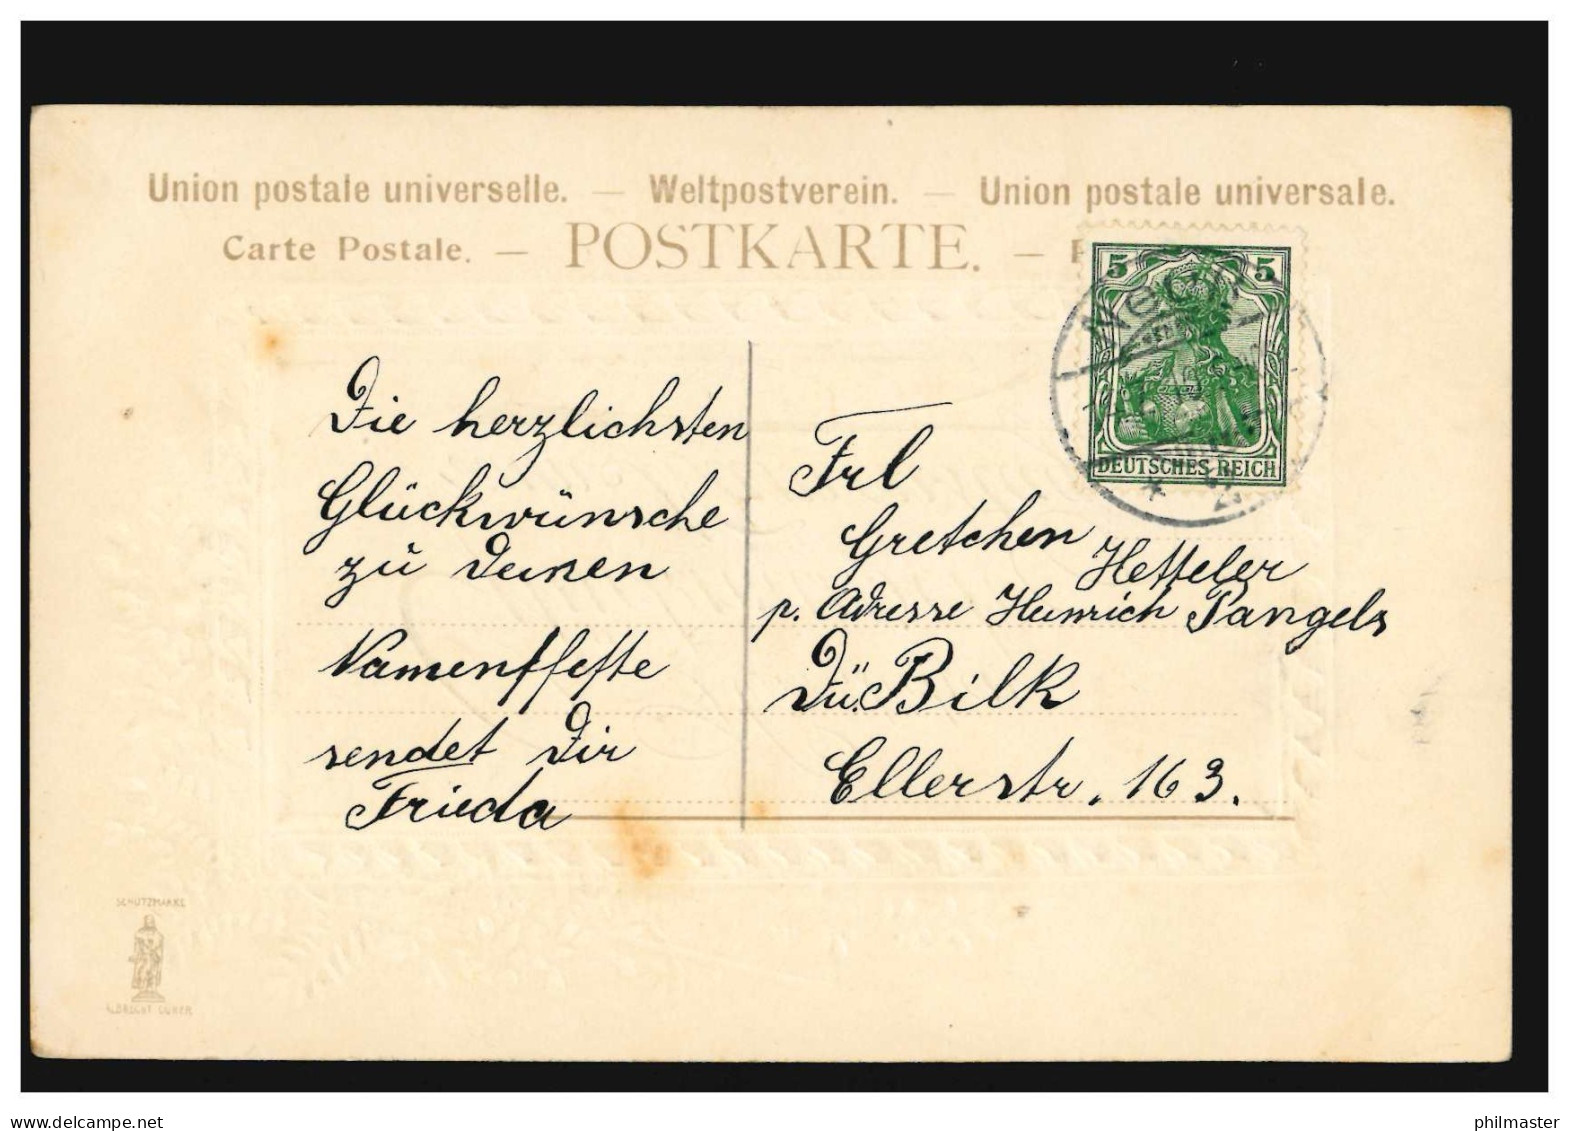 Union postale universelle. — Weltpostverein. — Union postale universale.
Carte Postale. — POSTKARTE. —
5 5
DEUTSCHES REICH
Die herzlichsten
Glückwünsche
zu Deinen
Namensfeste
sendet Dir
Frieda
Frl
Gretchen Hetteler
p. Adresse Heinrich Pangels
Dü. Bilk
Ellerstr. 163.
SCHUTZMARKE
ALBRECHT DÜRER
www.delcampe.net
philmaster